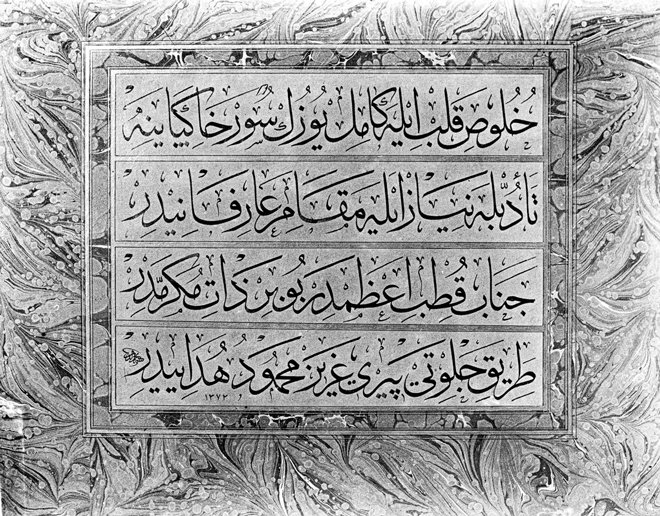 خُلوصِ قلب ايله كامل يوزك سور خاكپاينه
تأدّبله نياز ايله مقام عارفانيدر
جناب قطب اعظمدر بو بر ذات مكرمدر
طريق جلوتى پيرى عزيز محمود هدائيدر
١٣٧٢